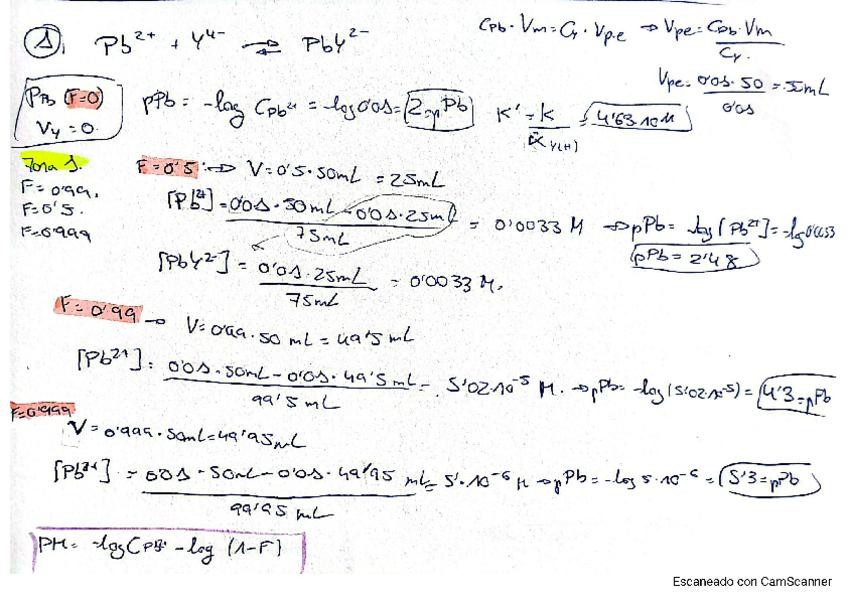 1. Pb²⁺ + Y⁴⁻ ⇌ PbY²⁻
C_Pb · Vm = C_Y · V_pe → V_pe = C_Pb · Vm / C_Y
V_pe = 0'01 · 50 / 0'01 = 50 mL
(F=0) V_Y = 0
pPb = -log C_Pb²⁺ = -log 0'01 = 2 = pPb
K' = K / α_Y(H) =
Zona 1.
F = 0'99,
F = 0'5.
F = 0'999
F = 0'5 → V = 0'5 · 50 mL = 25 mL
[Pb²⁺] = 0'01 · 50 mL - 0'01 · 25 mL / 75 mL = 0'0033 M → pPb = -log [Pb²⁺] = -log 0'0033
pPb = 2'48
[PbY²⁻] = 0'01 · 25 mL / 75 mL = 0'0033 M.
F = 0'99 → V = 0'99 · 50 mL = 49'5 mL
[Pb²⁺] = 0'01 · 50 mL - 0'01 · 49'5 mL / 99'5 mL = 5'02·10⁻⁵ M. → pPb = -log (5'02·10⁻⁵) = 4'3 = pPb
F = 0'999
V = 0'999 · 50 mL = 49'95 mL
[Pb²⁺] = 0'01 · 50 mL - 0'01 · 49'95 mL / 99'95 mL = 5'·10⁻⁶ M → pPb = -log 5·10⁻⁶ = 5'3 = pPb
pM = -log C_Pb²⁺ - log (1-F)
Escaneado con CamScanner